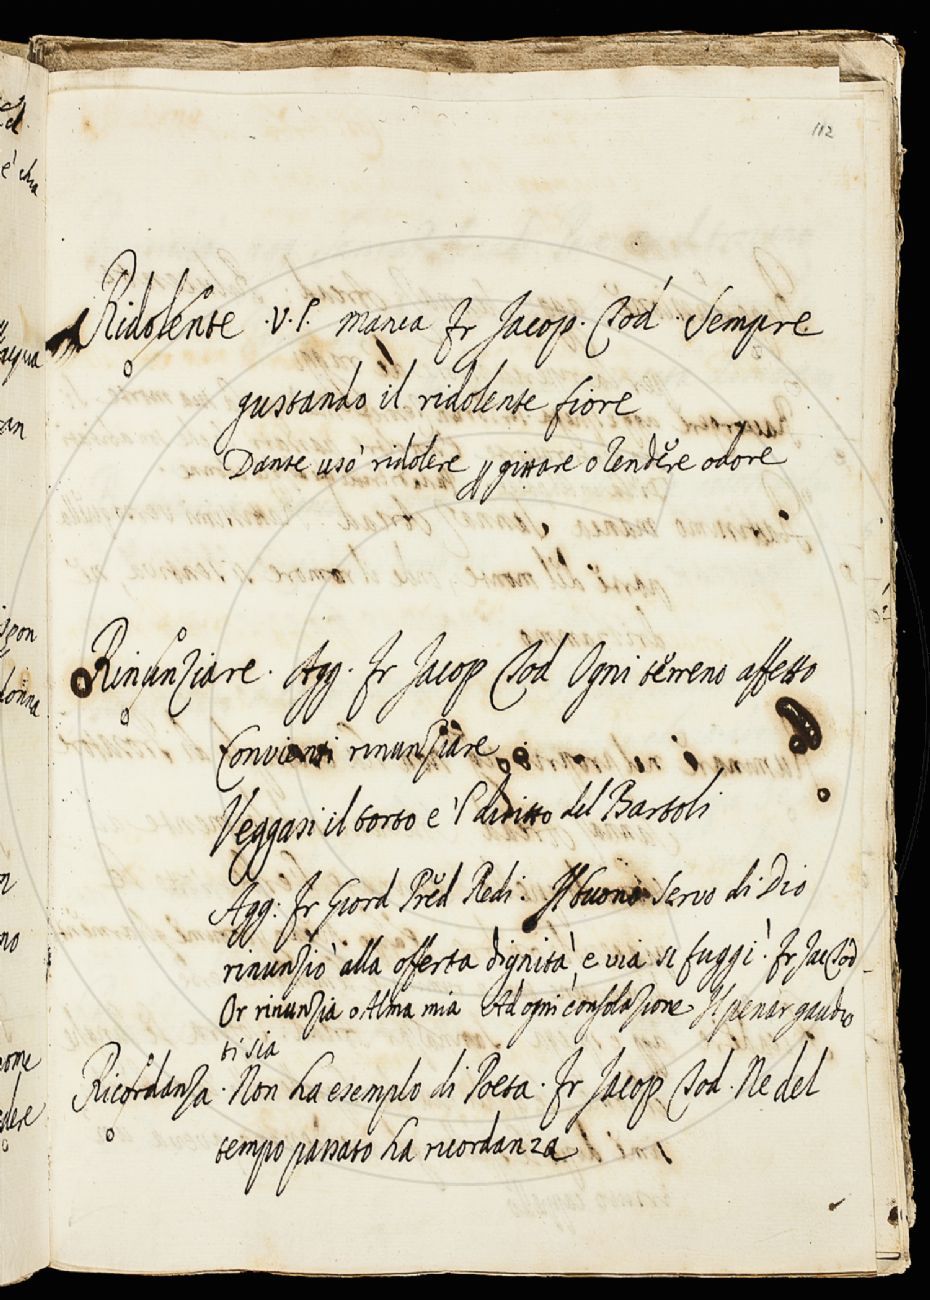 112
Ridolente . V. S. manca Fr Jacop. Tod Sempre
gustando il ridolente fiore
Dante usò ridolere p gittare o rendere odore
Rinunziare . Agg. Fr Jacop Tod Ogni terreno affetto
Convienti rinunziare
Veggasi il torto e 'l diritto del Bartoli
Agg: Fr Giord Pred Redi. Il buono servo di Dio
rinunziò alla offerta dignità, e via si fuggì. Fr Jac Tod
Or rinunzia o Alma mia Ad ogni consolazione Il penar gaudio
ti sia
Ricordanza . Non ha esemplo di Poeta . Fr Jacop Tod . Ne del
tempo passato ha ricordanza